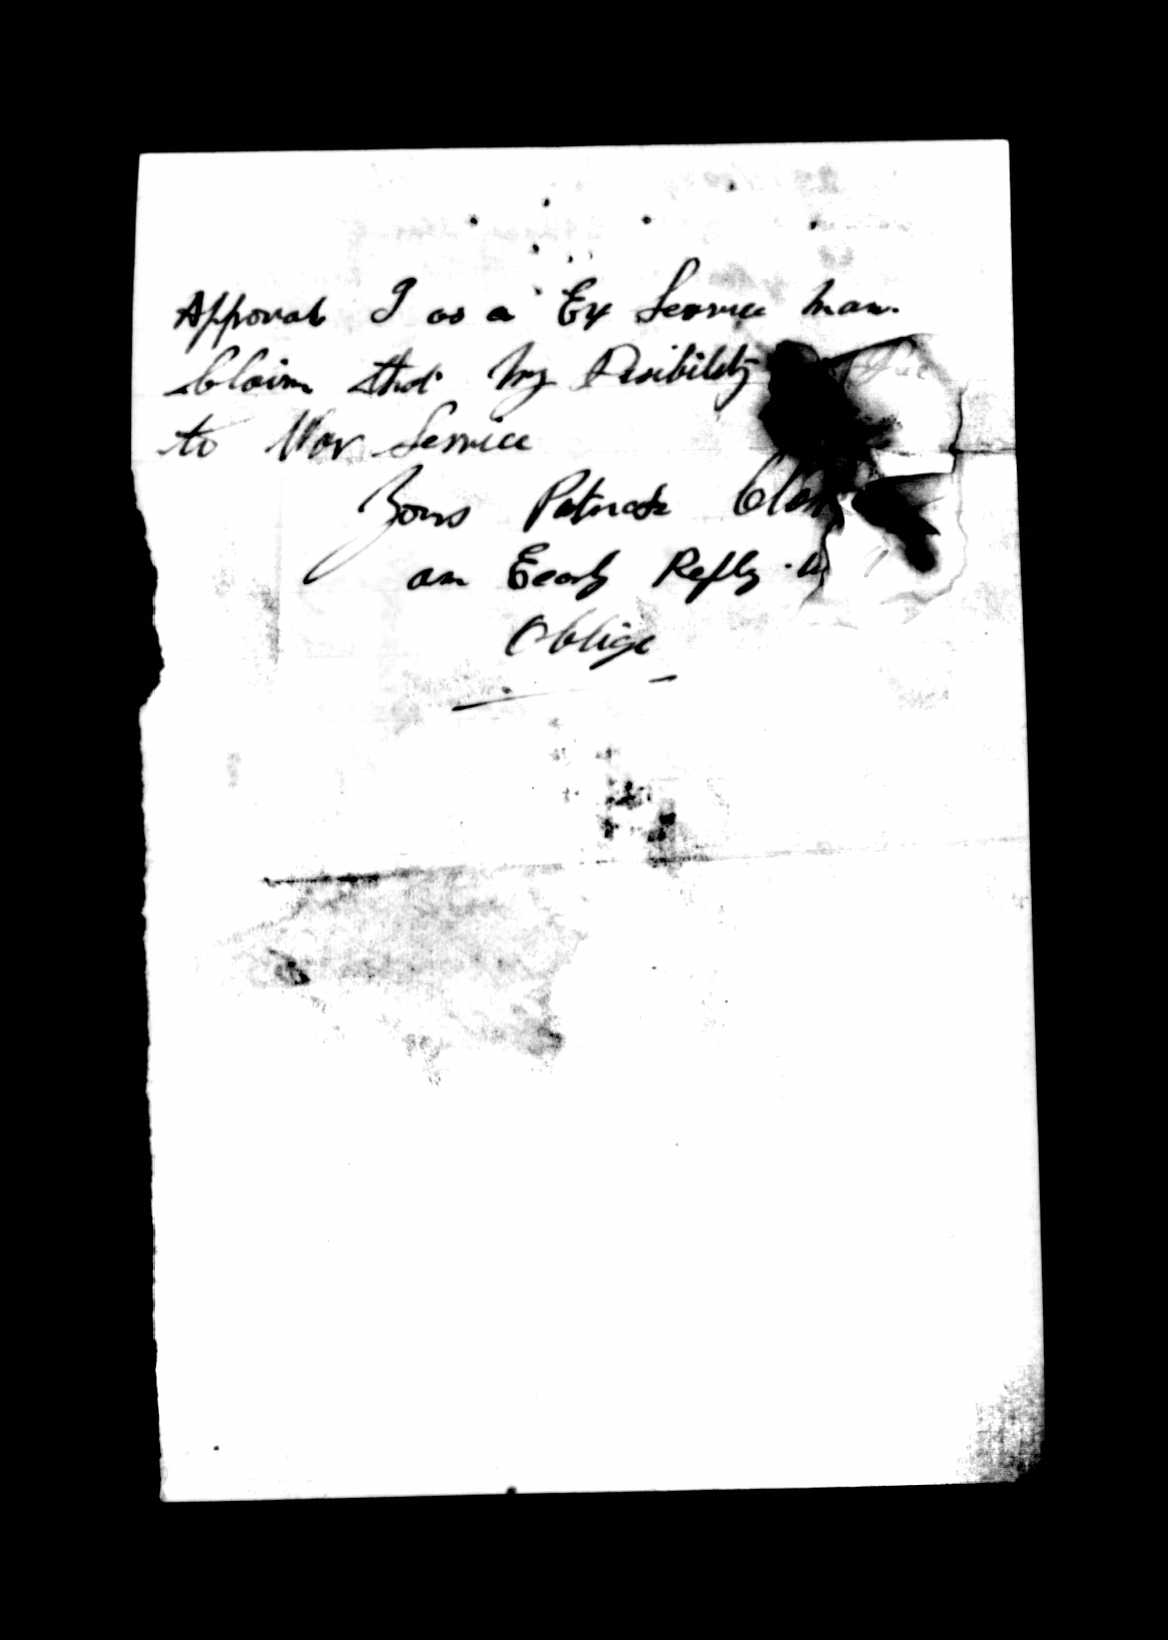 Apporval I as a Ex Service man.
Claim that My Disibility Due
to War Service
Yours Patrick
an Early Reply
Oblige